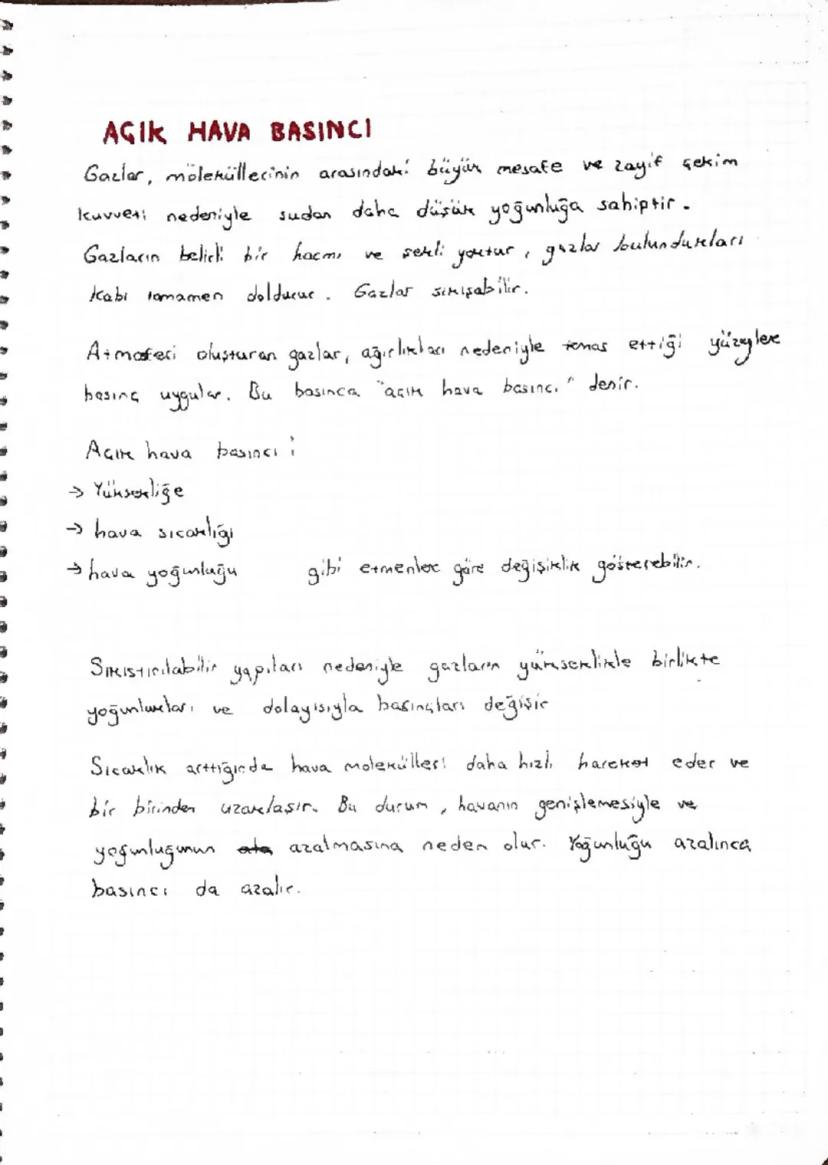 AÇIK HAVA BASINCI
Gazlar, moleküllerinin arasındaki büyük mesafe ve zayıf çekim
kuvveti nedeniyle sudan daha düşük yoğunluğa sahiptir.
Gazların belirli bir hacmi ve şekli yoktur, gazlar bulundukları
kabı tamamen doldurur. Gazlar sıkışabilir.
Atmosferi oluşturan gazlar, ağırlıkları nedeniyle temas ettiği yüzeylere
basınç uygular. Bu basınca "açık hava basıncı" denir.
Açık hava basıncı;
→ Yüksekliğe
→ hava sıcaklığı
→ hava yoğunluğu gibi etmenlere göre değişiklik gösterebilir.
Sıkıştırılabilir yapıları nedeniyle gazların yükseklikle birlikte
yoğunlukları ve dolayısıyla basınçları değişir
Sıcaklık arttığında hava molekülleri daha hızlı hareket eder ve
bir birinden uzaklaşır. Bu durum, havanın genişlemesiyle ve
yoğunluğunun azalmasına neden olur. Yoğunluğu azalınca
basıncı da azalır.